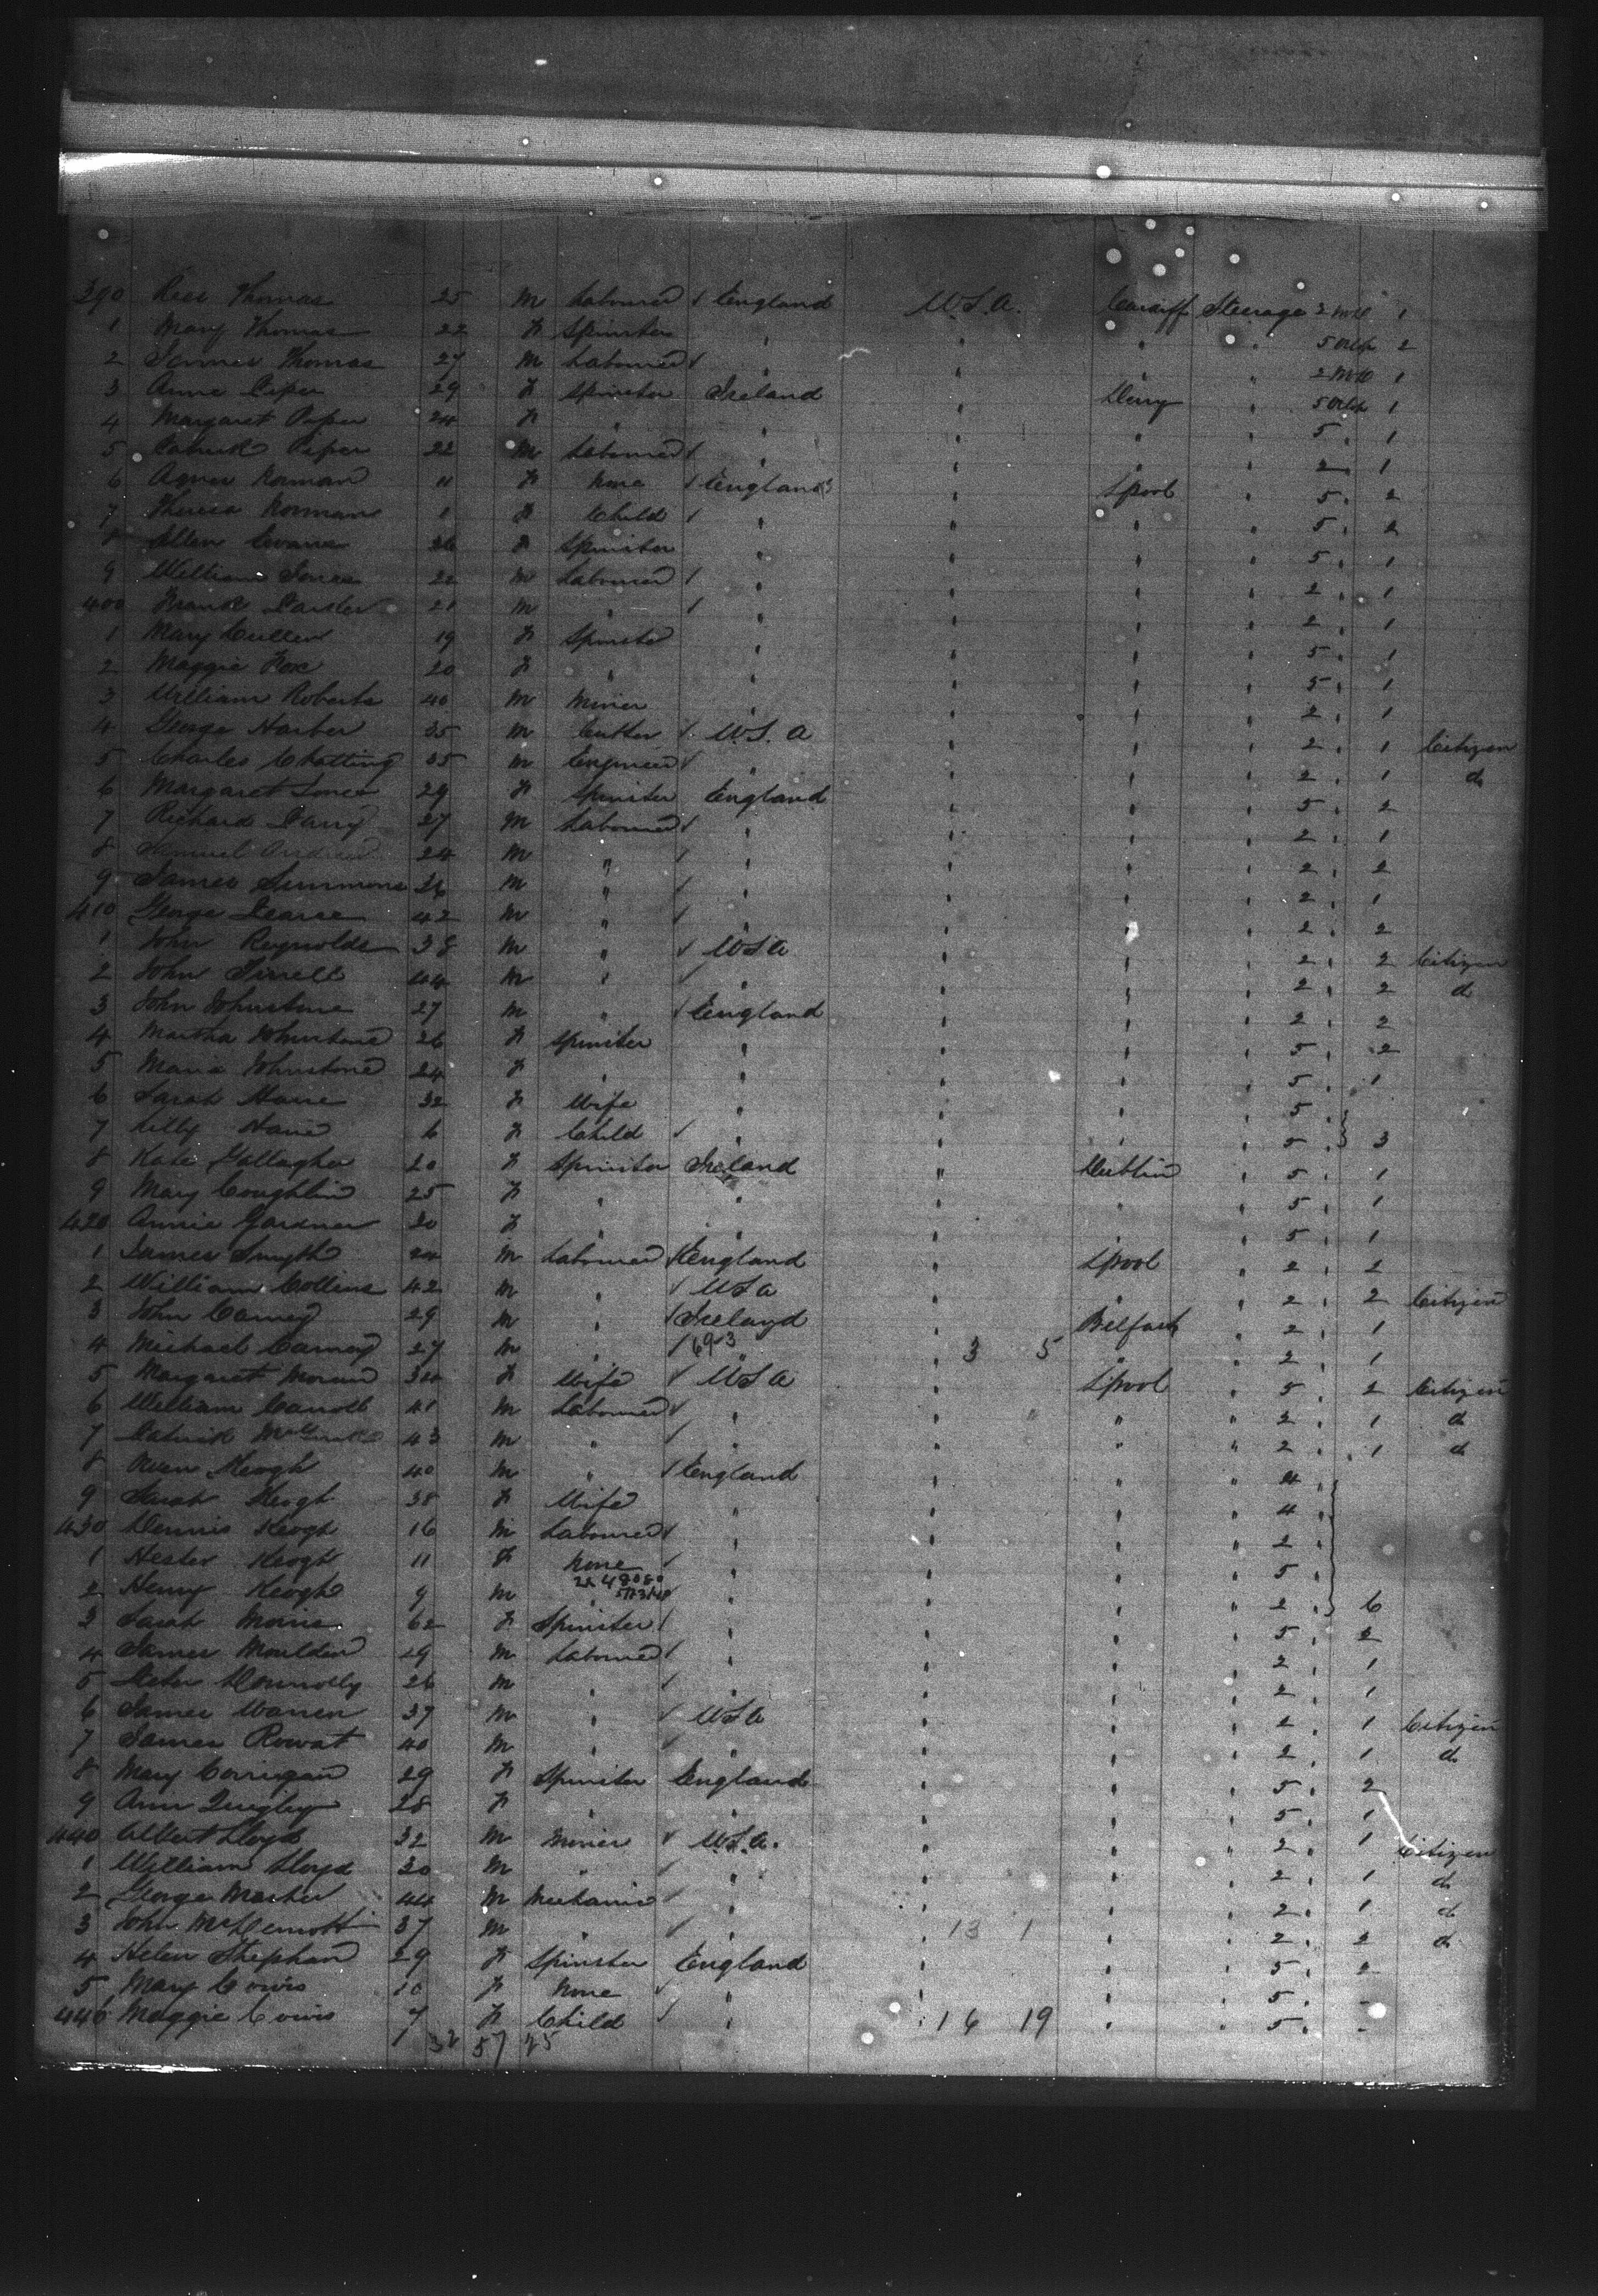 390 Rees Thomas 25 M Labourer / England U.S.A. Cardiff Steerage 2 Mid 1
1 Mary Thomas 22 F Spinster " " " " 5 2
2 James Thomas 27 M Labourer / " " " " 2 Mid 1
3 Anne Piper 29 F Spinster Ireland " Derry " 5 1
4 Margaret Piper 24 F " " " " " 5 " 1
5 Patrick Piper 22 M Labourer / " " " " 2 " 1
6 Agnes Norman 11 F None / England " Lpool " 5 " 2
7 Theresa Norman F Child / " " " " 5 " 2
8 Ellen Evans 26 F Spinster " " " " 5 " 1
9 William Jones 22 M Labourer / " " " " 2 " 1
400 Frank 21 M " / " " " " 2 " 1
1 Mary Cullen 19 F Spinster " " " " 5 " 1
2 Maggie Fox 20 F " " " " " 5 " 1
3 William Roberts 40 M Miner " " " " 2 " 1
4 George Harber 35 M Cutter / U.S.A " " " 2 " 1 Citizen
5 Charles Chatting 35 M Engineer / " " " " 2 " 1 do
6 Margaret Jones 29 F Spinster England " " " 5 " 2
7 Richard Parry 27 M Labourer / " " " " 2 " 1
8 Samuel 24 M " / " " " " 2 " 2
9 James Simmons 36 M " / " " " " 2 " 1
410 George Pearce 42 M " / " " " " 2 " 2
1 John Reynolds 38 M " / USA " " " 2 " 2 Citizen
2 John Tirrell 44 M " / " " " " 2 " 2 do
3 John Johnstone 27 M " / England " " " 2 " 2
4 Martha Johnstone 26 F Spinster " " " " 5 " 2
5 Maria Johnstone 24 F " " " " " 5 " 1
6 Sarah 32 F Wife " " " " 5 "
7 Lilly 6 F Child / " " " " 5 " 3
8 Kate Gallagher 20 F Spinster Ireland " Dublin " 5 " 1
9 Mary Coughlin 25 F " " " " " 5 " 1
420 Annie Gardner 20 F " " " " " 5 " 1
1 James Smyth M Labourer / England " Lpool " 2 " 2
2 William Collins 42 M " / USA " " " 2 " 2 Citizen
3 John Carney 29 M " / Ireland " Belfast " 2 " 1
4 Michael Carney 27 M " / 693 " 3 5 " " 2 " 1
5 Margaret Moran 34 F Wife / USA " Lpool " 5 " 2 Citizen
6 William Carroll 41 M Labourer / " " " " 2 " 1 do
7 Patrick 43 M " / " " " " 2 " 1 do
8 Owen Keogh 40 M " / England " " " 4
9 Sarah Keogh 38 F Wife " " " " 4
430 Dennis Keogh 16 M Labourer / " " " " 2
1 Hester Keogh 11 F None / " " " " 5
2 Henry Keogh 9 M " / " " " " 2 " 6
3 Sarah 62 F Spinster / " " " " 5 " 2
4 James Moulden 29 M Labourer / " " " " 2 " 1
5 Peter Connolly 26 M " / " " " " 2 " 1
6 James Warren 37 M " / USA " " " 2 " 1 Citizen
7 James Rowat 40 M " / " " " " 2 " 1 do
8 Mary Corrigan 29 F Spinster England " " " 5 " 2
9 Ann Quigley 28 F " " " " " 5 " 1
440 Albert Lloyd 32 M Miner / U.S.A. " " " 2 " 1 Citizen
1 William Lloyd 30 M " / " " " " 2 " 1 do
2 George 44 M Mechanic / " " " " 2 " 1 do
3 John McDermott 37 M " / " " 13 1 " " 2 " 2 do
4 Helen Stephan 29 F Spinster England " " " 5 " 2
5 Mary 10 F None / " " " " 5 " -
446 Maggie 7 F Child / " " 16 19 " " 5 " -
1 32 57 25